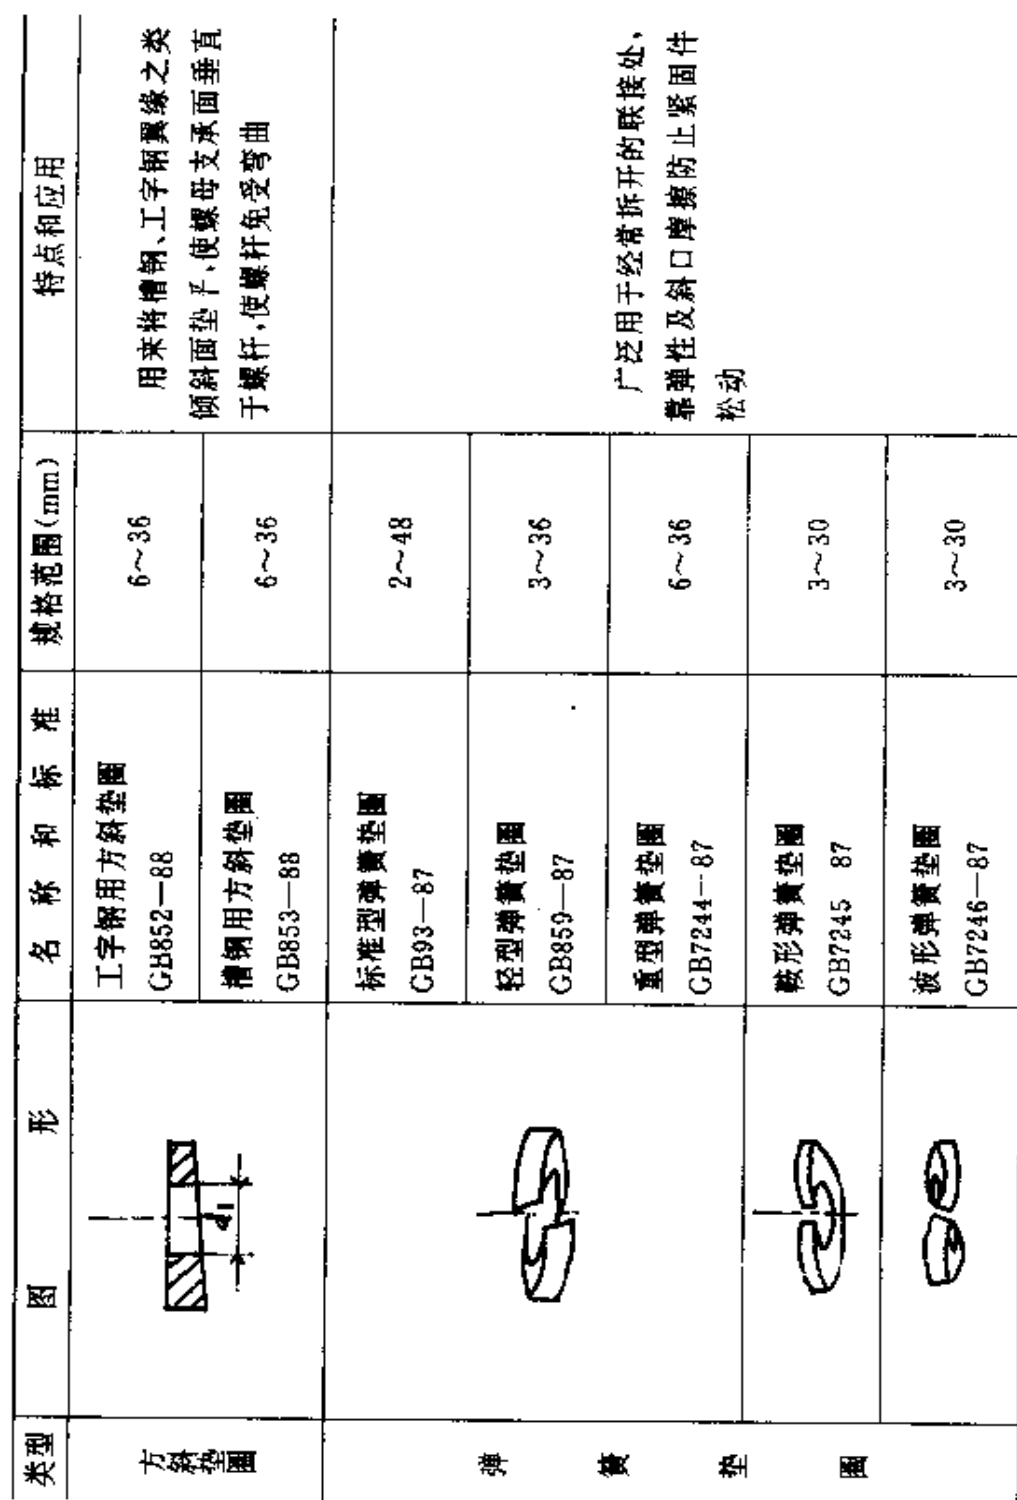 类型 图 形 名 称 和 标 准 规格范围(mm) 特点和应用
方斜垫圈
d1
工字钢用方斜垫圈
GB852—88
6~36
用来将槽钢、工字钢翼缘之类
倾斜面垫平,使螺母支承面垂直
于螺杆,使螺杆免受弯曲
槽钢用方斜垫圈
GB853—88
6~36
弹 簧 垫 圈
标准型弹簧垫圈
GB93—87
2~48
广泛用于经常拆开的联接处,
靠弹性及斜口摩擦防止紧固件
松动
轻型弹簧垫圈
GB859—87
3~36
重型弹簧垫圈
GB7244—87
6~36
鞍形弹簧垫圈
GB7245 87
3~30
波形弹簧垫圈
GB7246—87
3~30